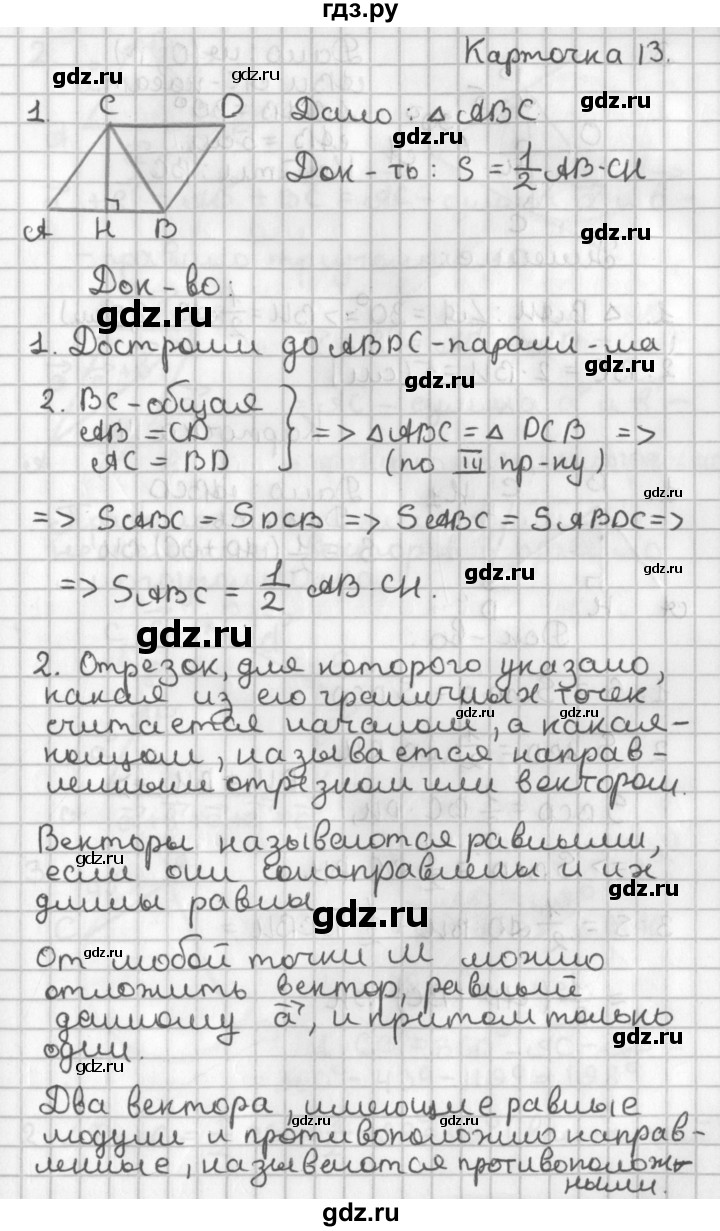 гдз.ру
Карточка 13.
gdz.ru
gdz.ru
1. C D Дано: △ABC
gdz.ru
gdz.ru
Док-ть: S = 1/2 AB·CH
A H B
gdz.ru
Док-во:
gdz.ru
gdz.ru
1. Достроим до ABDC-паралл-ма
gdz.ru
gdz.ru
2. BC-общая
AB = CD } => △ABC = △ DCB =>
AC = BD (по III пр-ку)
gdz.ru
=> SABC = SDCB => SABC = SABDC =>
gdz.ru
gdz.ru
=> SABC = 1/2 AB·CH.
gdz.ru
2. Отрезок, для которого указано,
какая из его граничных точек
gdz.ru
gdz.ru
считается началом, а какая-
концом, называется направ-
ленным отрезком или вектором.
Векторы называются равными,
gdz.ru
если они сонаправлены и их
gdz.ru
длины равны
gdz.ru
gdz.ru
От любой точки M можно
отложить вектор, равный
данному a⃗, и притом только
gdz.ru
один.
gdz.ru
Два вектора, имеющие равные
модули и противоположно направ-
ленные, называются противополож-
ными.
gdz.ru